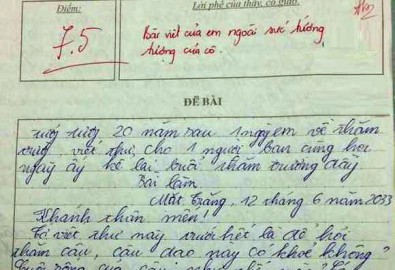 Điểm:
Lời phê của thầy, cô giáo:
7.5
Bài viết của em ngoài sức tưởng
tượng của cô.
ĐỀ BÀI
tưởng tượng 20 năm sau 1 ngày em về thăm
trường viết thư cho 1 người bạn cùng học
ngày ấy kể lại buổi thăm trường đầy
Bài làm
Mặt Trăng, 12 tháng 6 năm 2033
Khánh thân mến!
Tớ viết thư này trước hết là để hỏi
thăm cậu, cậu dạo này có khoẻ không?